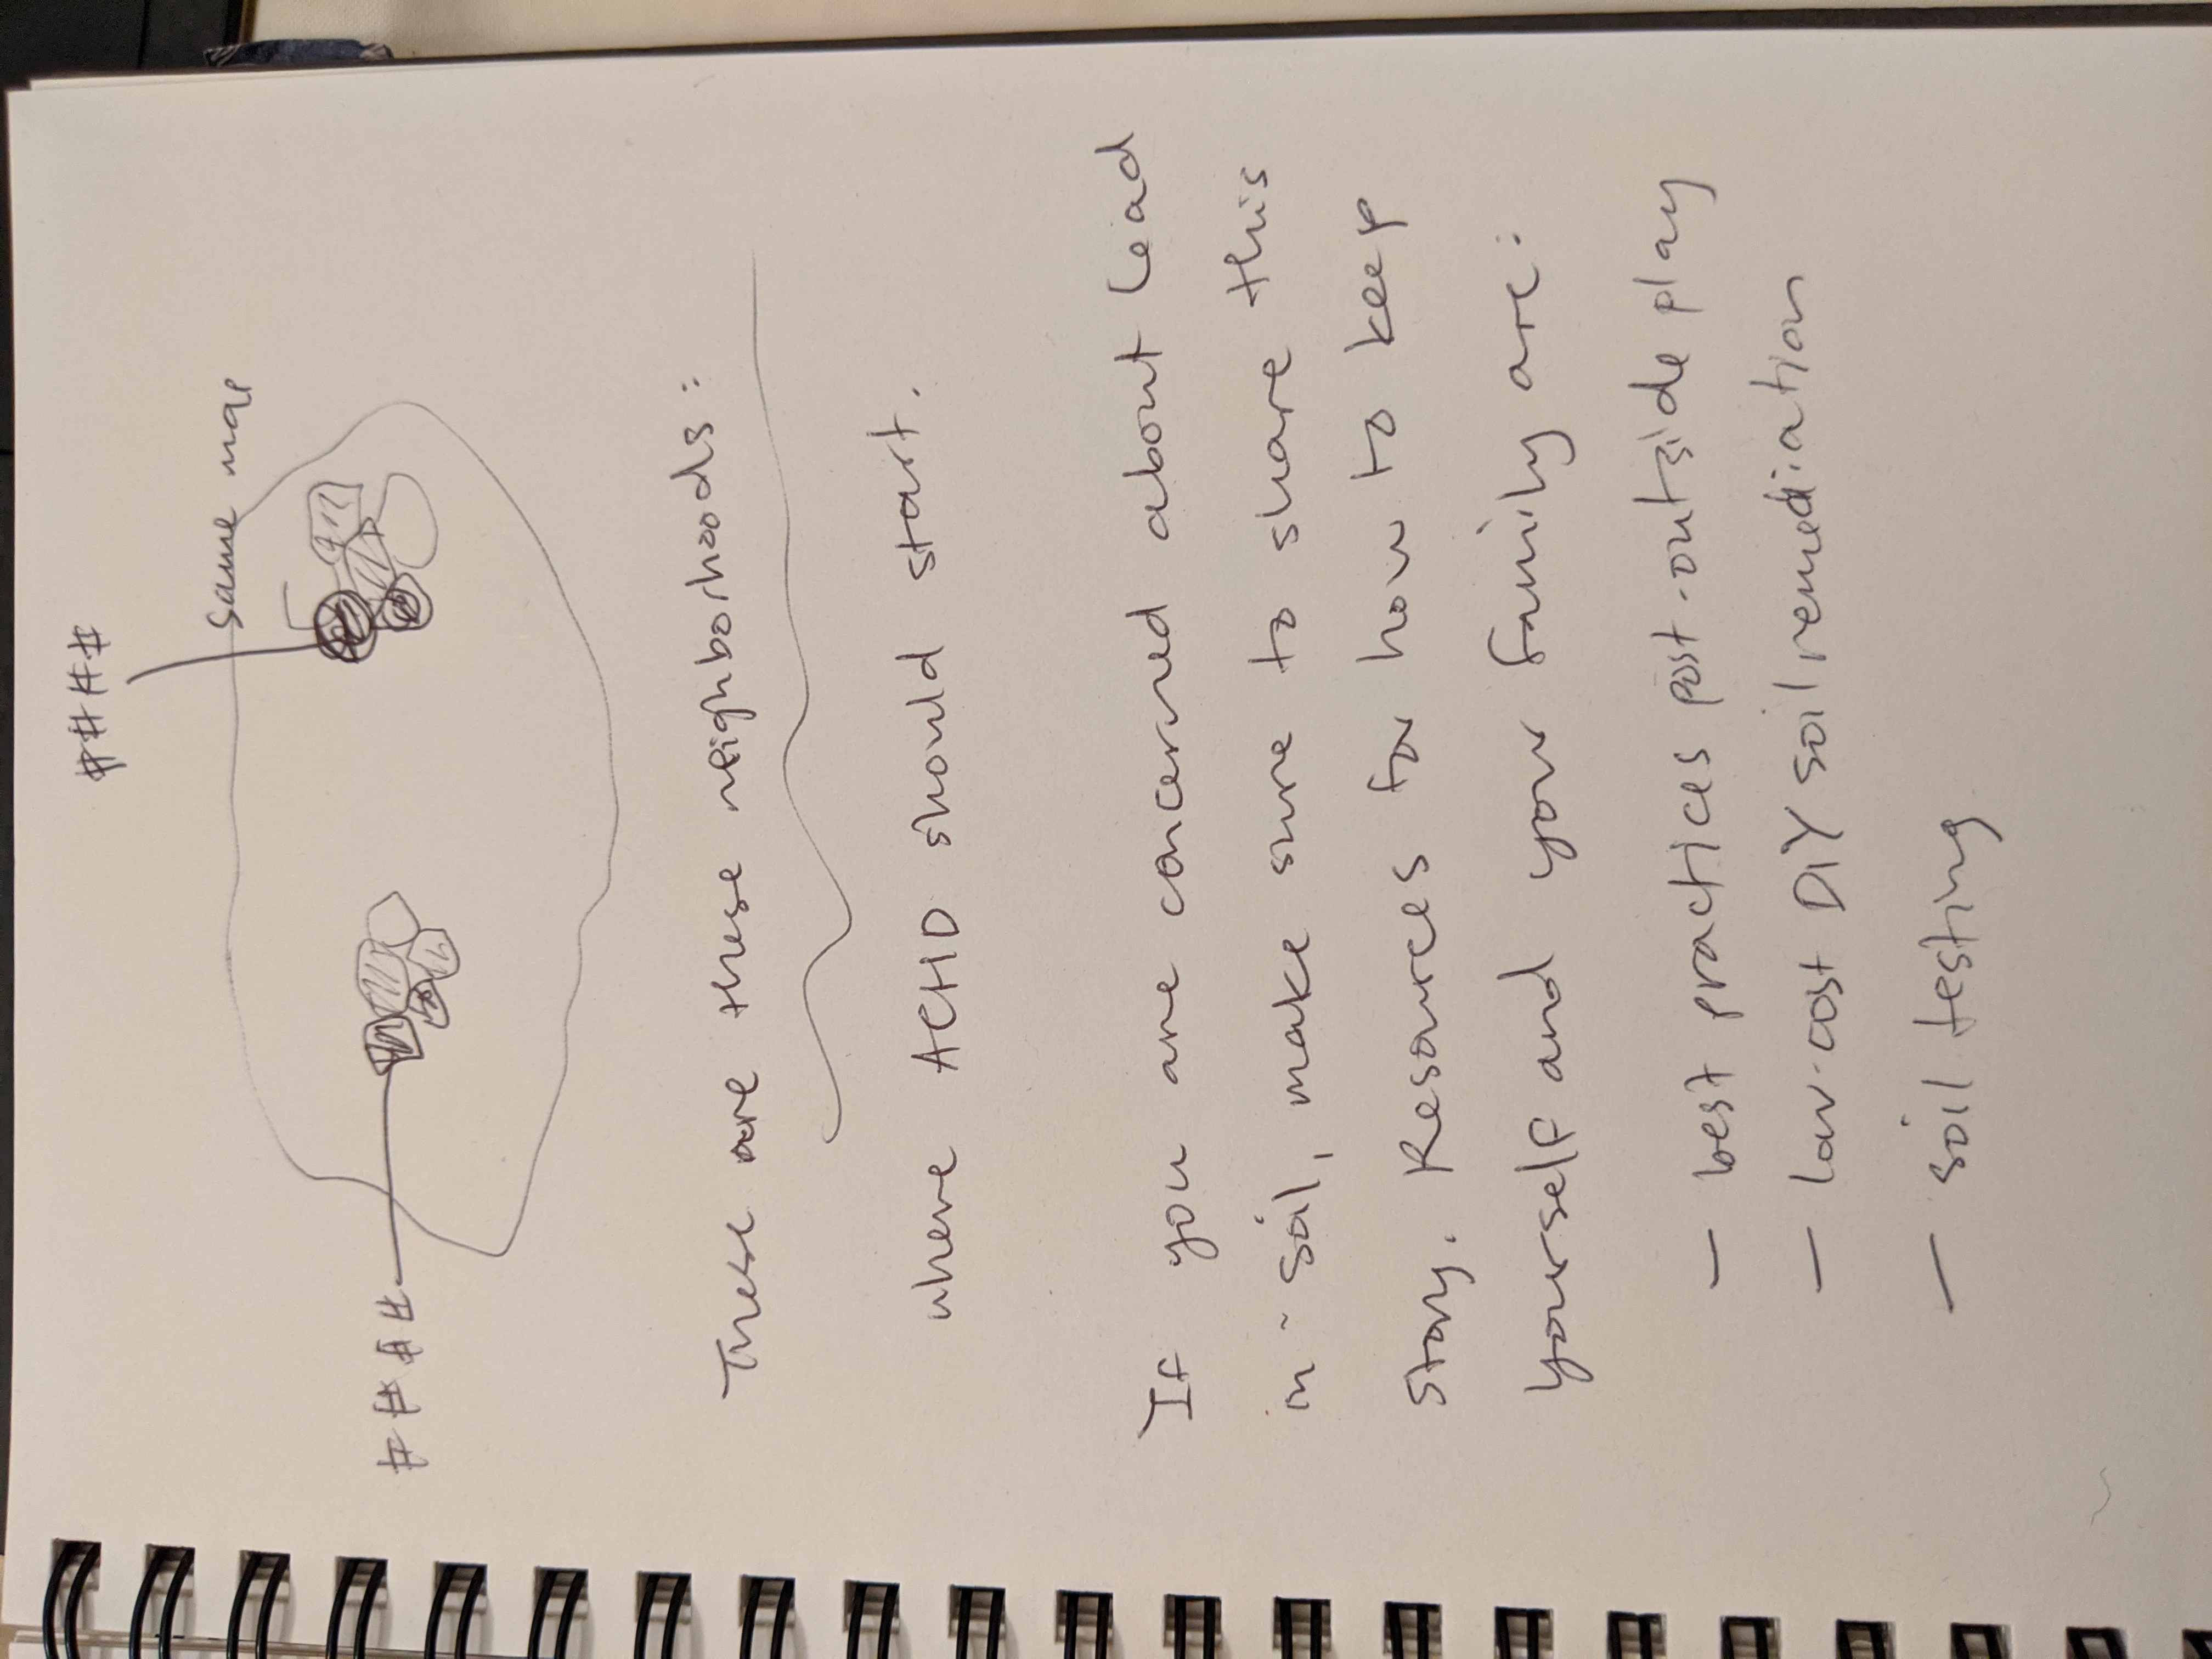 ####
same map
####
These are these neighborhoods:
where ACHD should start.
If you are concerned about lead
in soil, make sure to share this
story. Resources for how to keep
yourself and your family are:
- best practices post-outside play
- low-cost DIY soil remediation
- soil testing